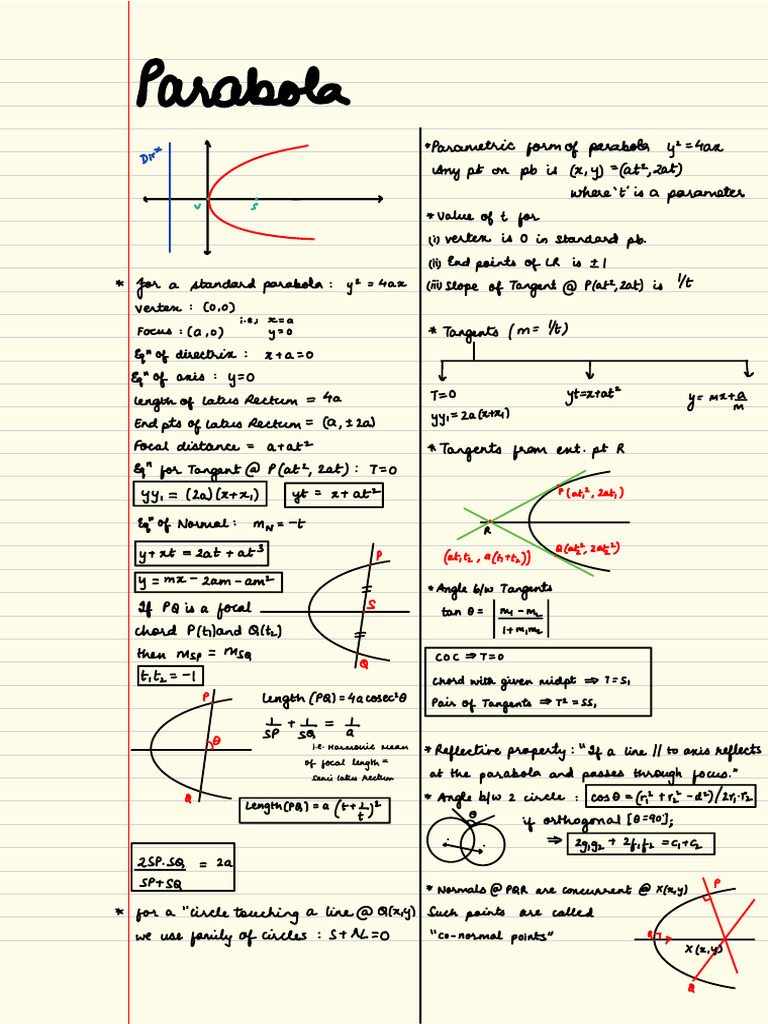 Parabola
Dirˣ
V
S
* for a standard parabola : y² = 4ax
vertex : (0,0)
i.e, x=a
Focus : (a,0) y=0
Eqⁿ of directrix : x+a=0
Eqⁿ of axis : y=0
Length of Latus Rectum = 4a
End pts of Latus Rectum = (a, ±2a)
Focal distance = a+at²
Eqⁿ for Tangent @ P(at², 2at) : T=0
yy₁ = (2a)(x+x₁)
yt = x+at²
Eqⁿ of Normal : m_N = -t
y+xt = 2at + at³
y = mx - 2am - am²
If PQ is a focal
chord P(t₁) and Q(t₂)
then m_SP = m_SQ
t₁t₂ = -1
P
S
Q
P
θ
Q
Length (PQ) = 4a cosec²θ
1/SP + 1/SQ = 1/a
i.e. Harmonic mean
of focal length =
semi latus rectum
Length (PQ) = a (t+1/t)²
2SP.SQ/SP+SQ = 2a
* for a "circle touching a line @ Q(x,y)
we use family of circles : S+λL=0
* Parametric form of parabola y² = 4ax
Any pt on pb is (x,y) = (at², 2at)
where 't' is a parameter
* Value of t for
(i) vertex is 0 in standard pb.
(ii) End points of LR is ±1
(iii) Slope of Tangent @ P(at², 2at) is 1/t
* Tangents (m = 1/t)
T=0
yy₁ = 2a(x+x₁)
yt=x+at²
y = mx+a/m
* Tangents from ext. pt R
P(at₁², 2at₁)
R
(at₁t₂, a(t₁+t₂))
Q(at₂², 2at₂²)
* Angle b/w Tangents
tan θ = |m₁-m₂/1+m₁m₂|
COC ⇒ T=0
Chord with given midpt ⇒ T=S₁
Pair of Tangents ⇒ T² = SS₁
* Reflective property : "If a line // to axis reflects
at the parabola and passes through focus."
* Angle b/w 2 circle : cosθ = (r₁² + r₂² - d²)/2r₁.r₂
θ
if orthogonal [θ=90°];
⇒ 2g₁g₂ + 2f₁f₂ = c₁+c₂
* Normals @ PQR are concurrent @ X(x,y)
Such points are called
"co-normal points"
P
R
X(x,y)
Q